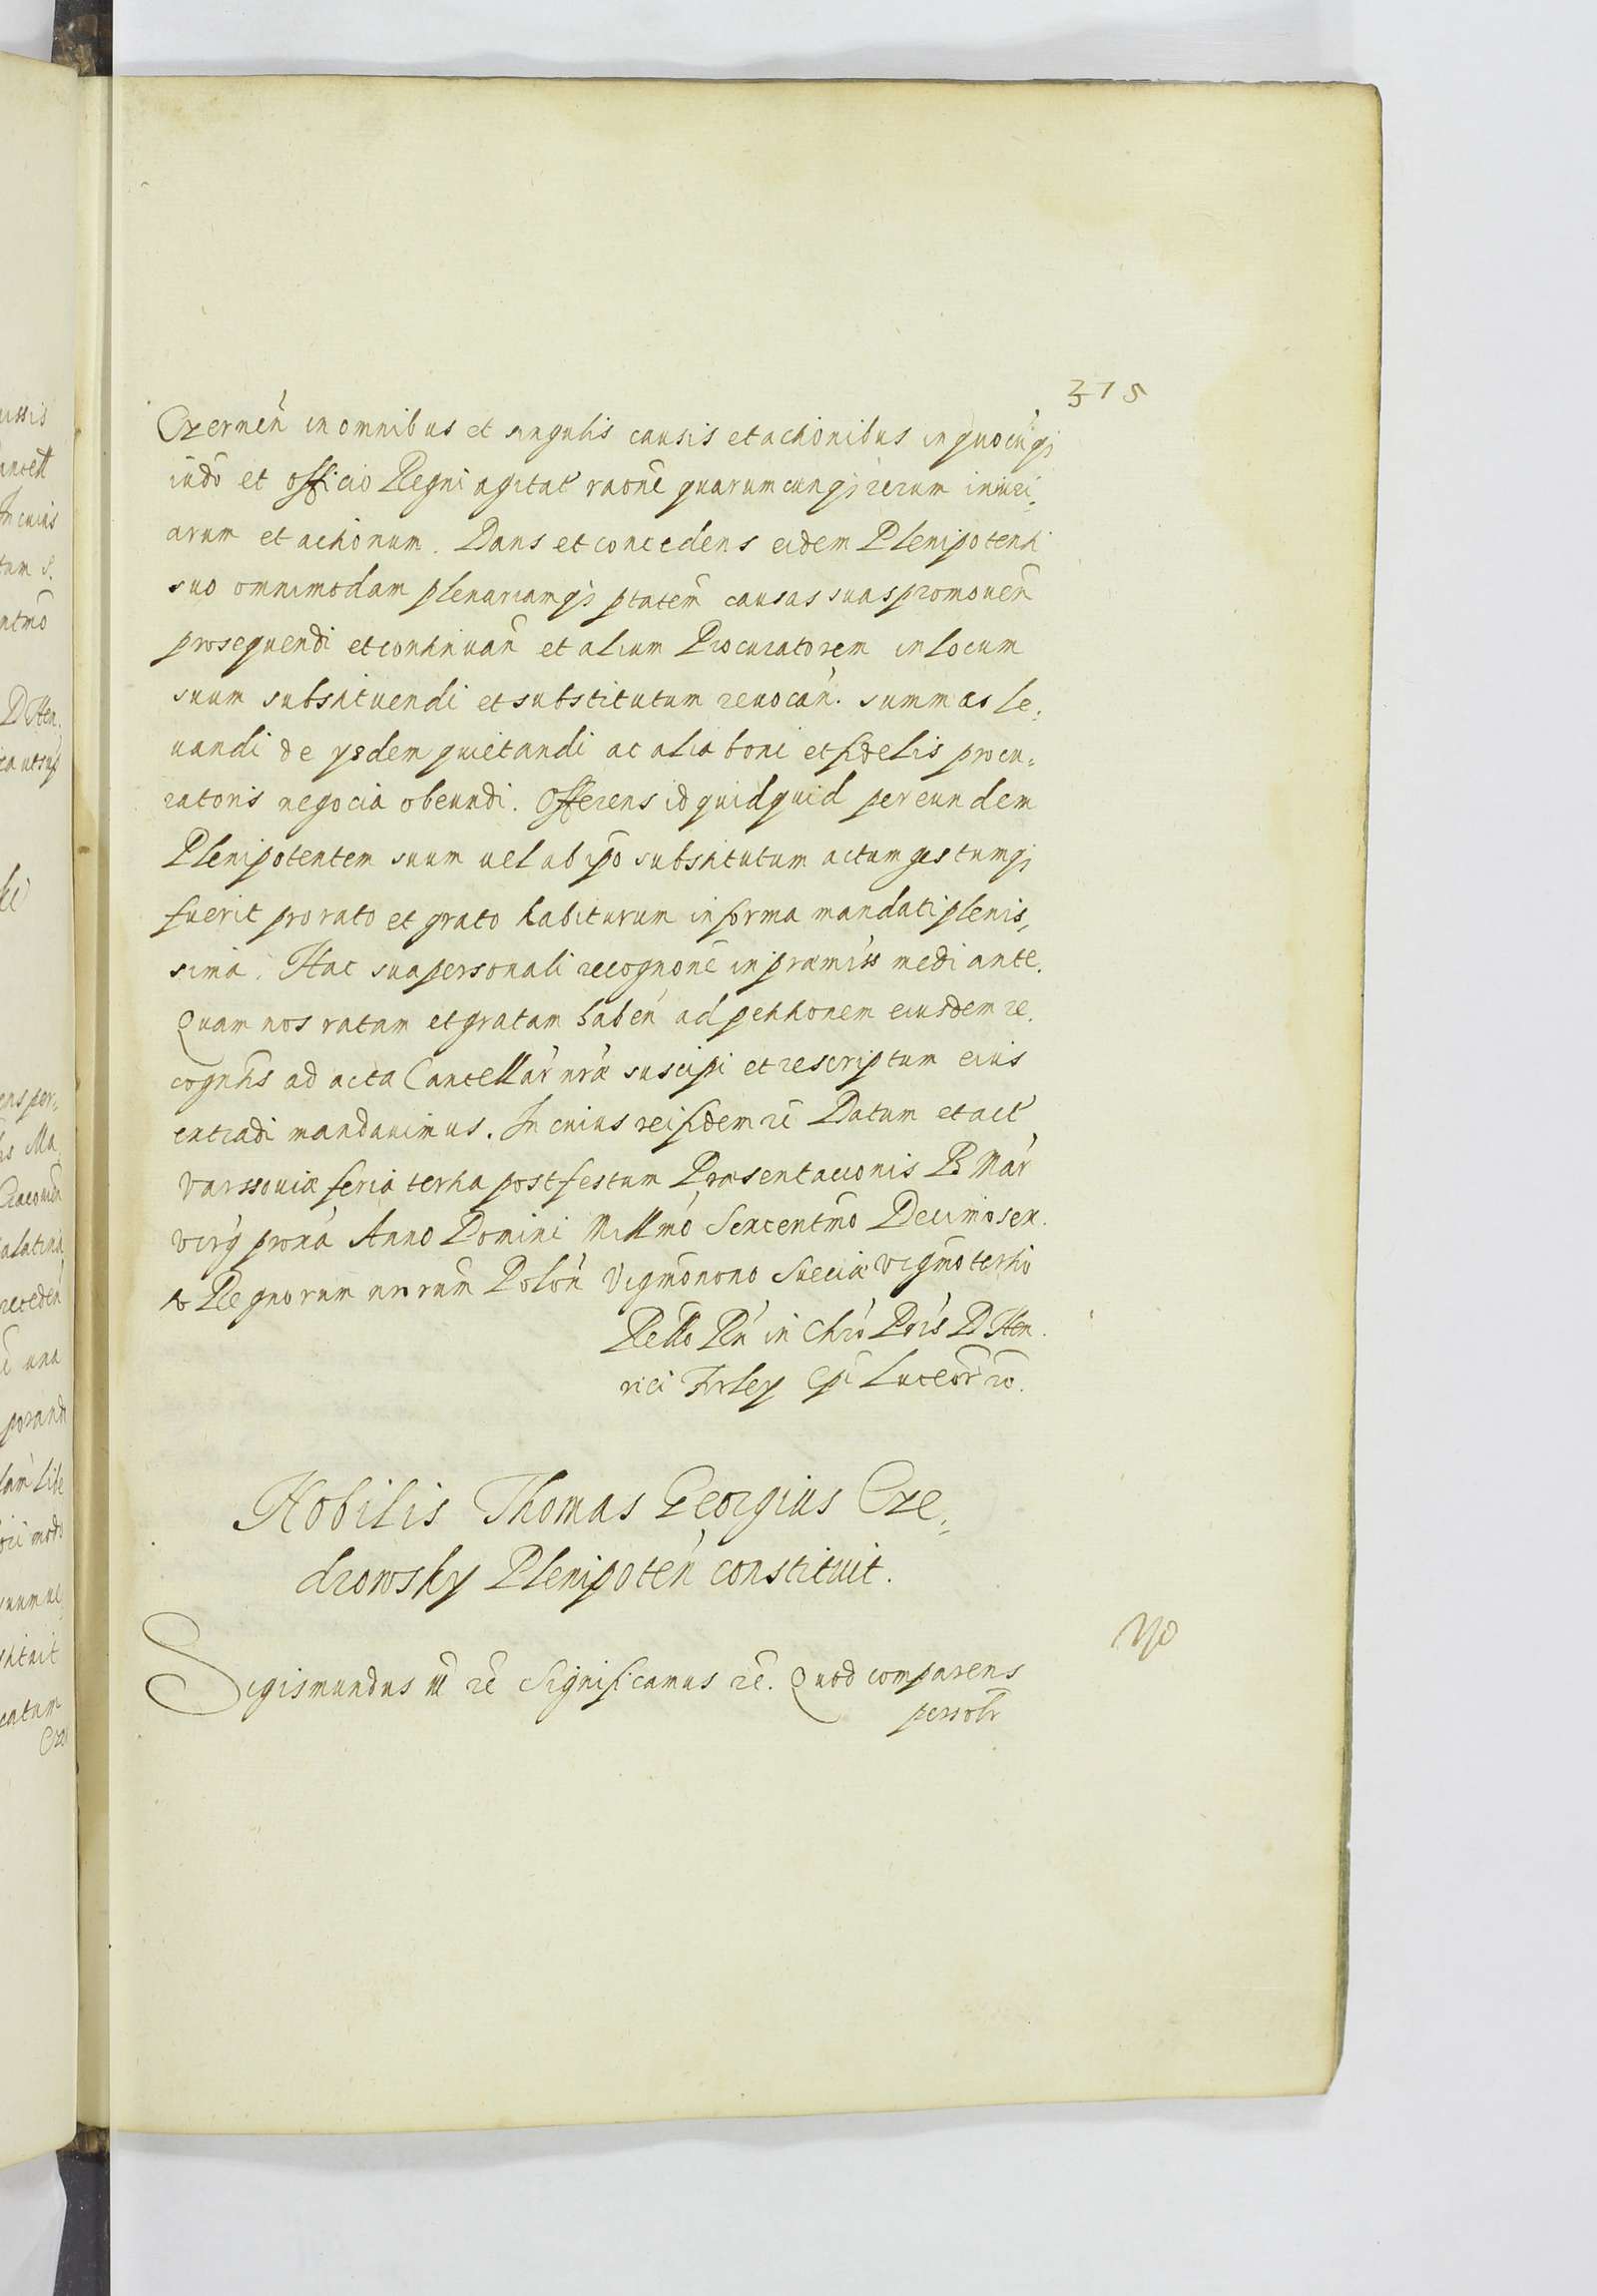 375
Czernēn in omnibus et singulis causis et actionibus in quocūqȝ
iudō et officio Regni agitat raōne quarumcunqȝ rerum iniuri=
arum et actionum. Dans et concedens eidem Plenipotenti
suo omnimodam plenariamqȝ ptatēm causas suas promouēn
prosequendi et continuān et alium Procuratorem in locum
suum substituendi et substitutum reuocān. summas le=
uandi de ysdem quietandi ac alia boni et fidelis procu=
ratoris negocia obeundi. Offerens id quidquid per eundem
Plenipotentem suum uel ab ipō substitutum actum gestumqȝ
fuerit pro rato et grato habiturum in forma mandati plenis=
sima. Hac sua personali recognōne in præmiss mediante.
Quam nos ratam et gratam habēn ad petitionem eiusdem re=
cogntis ad acta Cancellār nrǣ suscipi et rescriptum eius
extradi mandauimus. In cuius rei fidem rē Datum et act
Varssouiæ feria tertia post festum Præsentacionis B Mār
Virg proxā Anno Domini Millmō Sexcentmō Decimosex=
to Regnorum nrorum Polōn Vigmōnono Sueciæ Vigmōtertio
Rello Rń in Chrō Pris D Hen=
rici Firley Epi Luceor rō.
Nobilis Thomas Georgius Cze=
drowsky Plenipotēn constituit.
Sigismundus III rē Significamus rē. Quod comparens
personlr